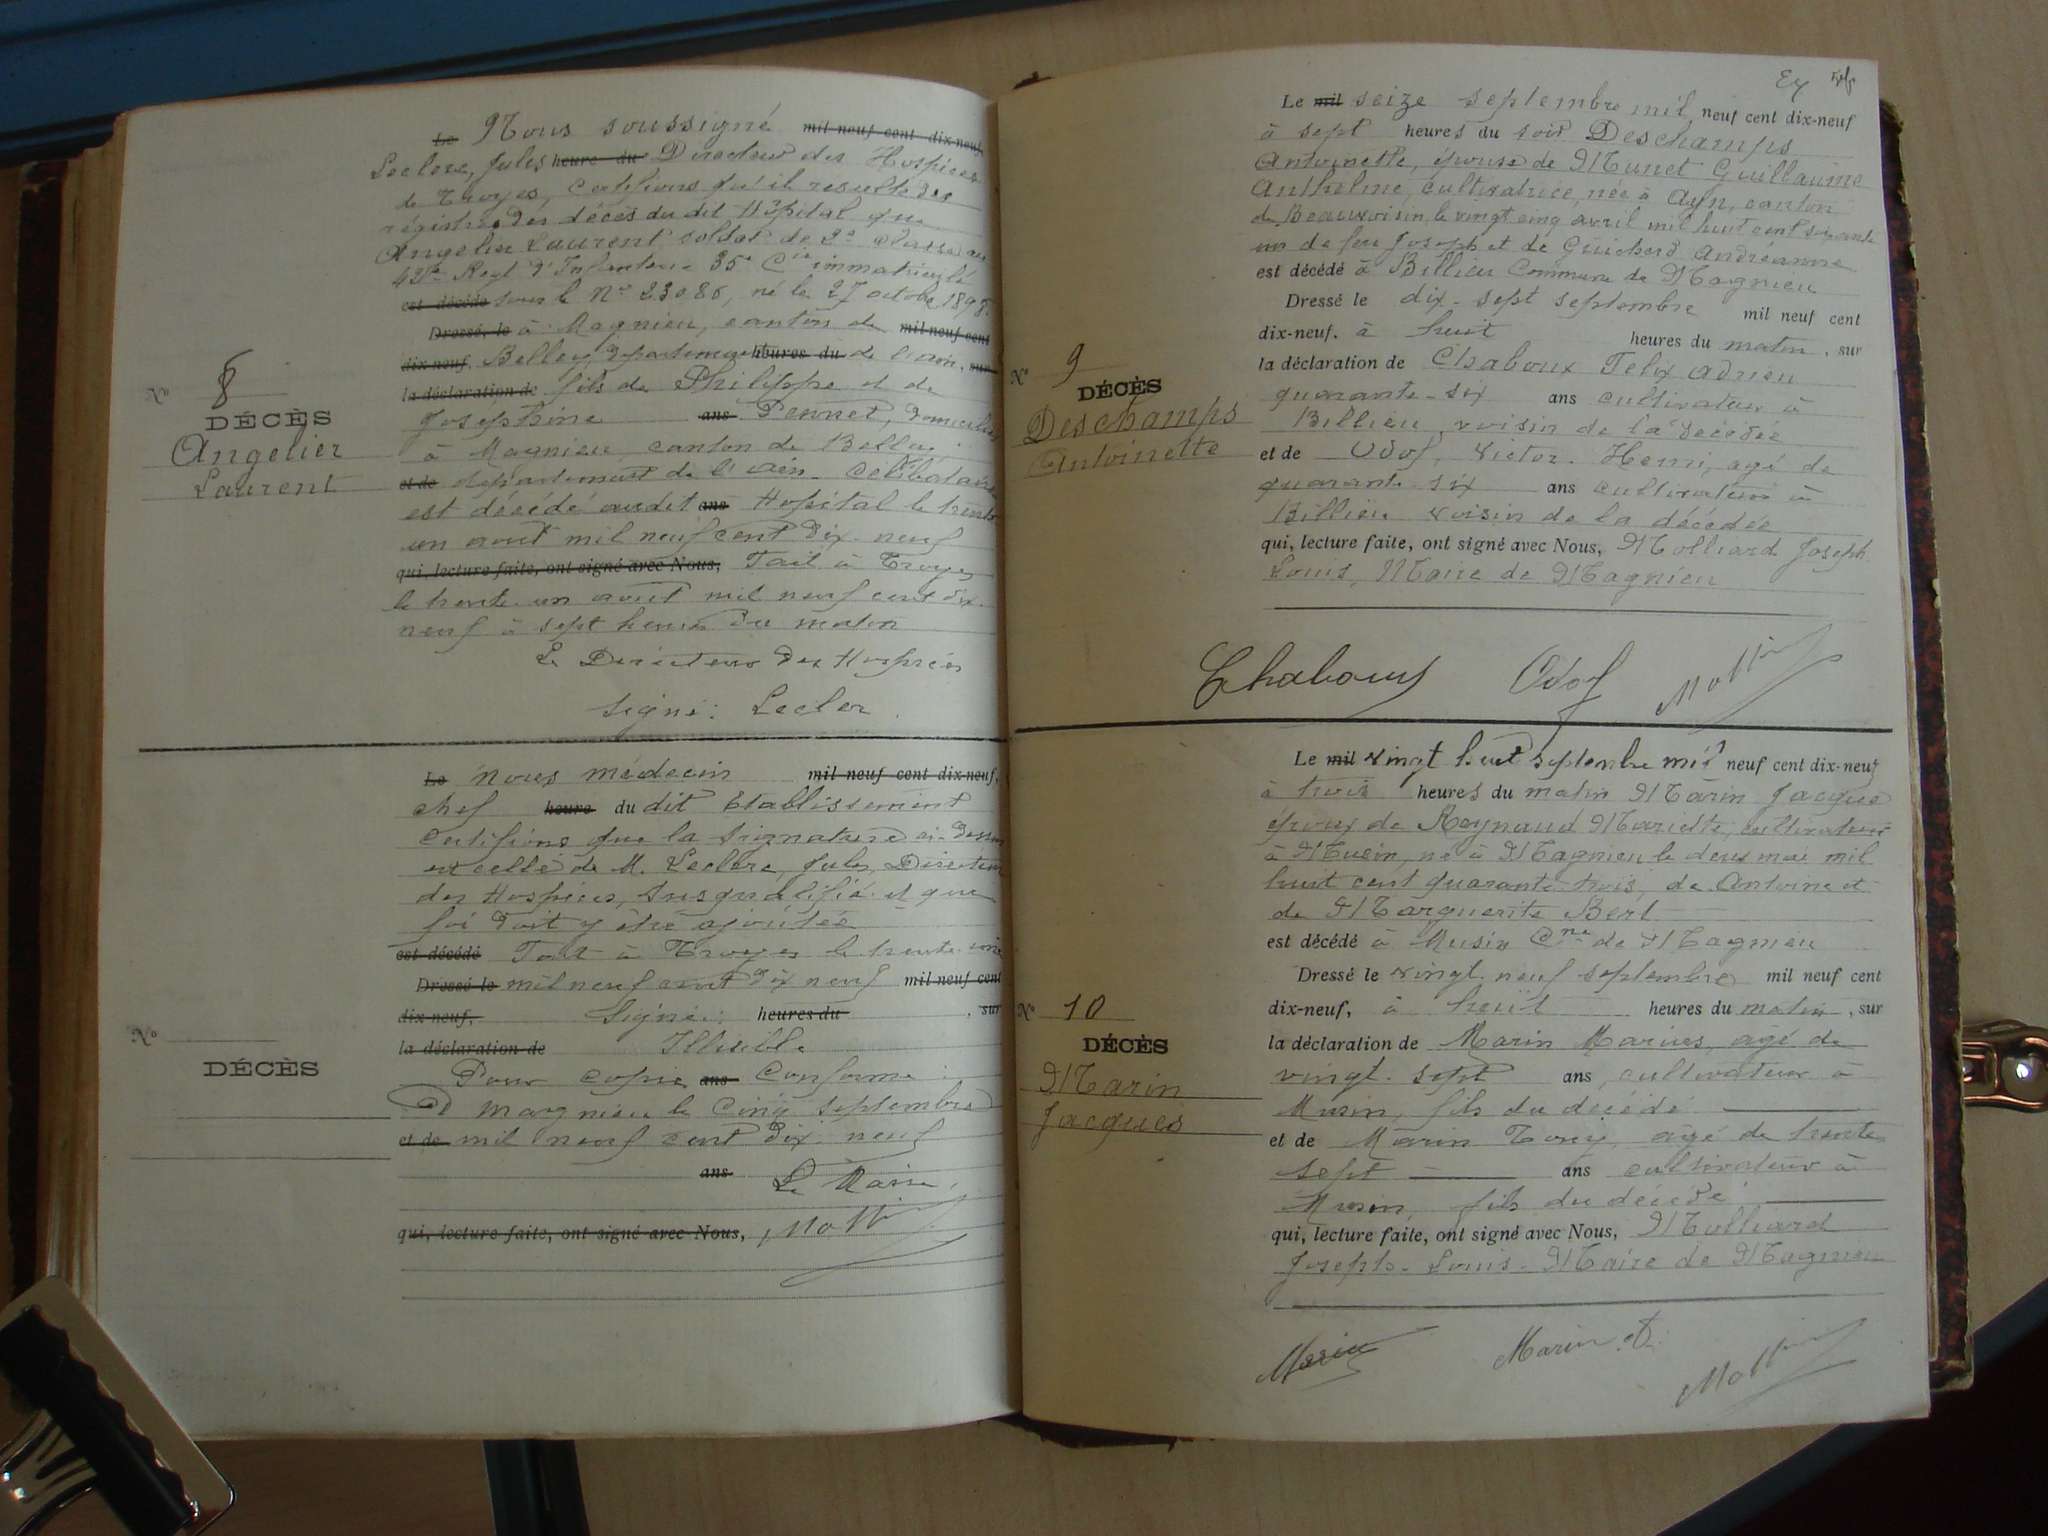 Le Nous soussigné mil neuf cent dix-neuf,
Leclerc, Jules heure du Directeur des Hospices
de Troyes, Certifions qu'il resulte des
régistres des décès du dit Hôpital que
Angelier Laurent soldat de 2e classe au
Regt d'Infanterie 35e Cie immatriculé
est décédé sous le No 23086, né le 27 octobre 1898
Dressé, le à Magnieu, canton de mil neuf cent
dix-neuf, Belley, département heures du de l'ain, sur
la déclaration de fils de Philippe et de
Josephine ans Pennet, domicilié
à Magnieu, canton de Belley,
et de département de l'ain. Célibataire
est décédé audit ans Hopital le trente
un aout mil neuf cent dix-neuf
qui, lecture faite, ont signé avec Nous, Fait à Troyes
le trente-un aout mil neuf cent dix-
neuf à sept heures du matin
Le Directeur des Hospices
Signé: Lecler
No 8
DÉCÈS
Angelier
Laurent
Le nous médecin mil neuf cent dix-neuf,
chef heure du dit Etablissement
Certifions que la signature ci-dessus
est celle de M. Leclerc, Jules, Directeur
des Hospices, susqualifié et que
foi doit y être ajoutée
est décédé Fait à Troyes le trente-un
Dressé le mil neuf cent dix neuf mil neuf cent
dix-neuf, Signé: heures du , sur
la déclaration de Illisible
Pour copie ans Conforme:
A Magnieu le cinq septembre
et de mil neuf cent dix-neuf
ans Le Maire,
qui, lecture faite, ont signé avec Nous,
No
DÉCÈS
Le mil seize septembre mil neuf cent dix-neuf
à sept heures du soir Deschamps
Antoinette, épouse de Munet Guillaume
Anthelme, cultivatrice, née à Ayn, canton
de Beauvoisin le vingt cinq avril mil huit cent soixante
un de feu Joseph et de Guicherd Andréanne
est décédé à Billieu Commune de Magnieu
Dressé le dix-sept septembre mil neuf cent
dix-neuf, à huit heures du matin, sur
la déclaration de Chaboux Félix Adrien
quarante-six ans cultivateur à
Billieu, voisin de la décédée
et de Odof, Victor-Henri, agé de
quarante-six ans cultivateur à
Billieu voisin de la décédée
qui, lecture faite, ont signé avec Nous, Molliard Joseph
Louis, Maire de Magnieu
Chaboux Odof
No 9
DÉCÈS
Deschamps
Antoinette
Le mil vingt huit septembre mil neuf cent dix-neuf
à trois heures du matin Marin Jacques
époux de Reynaud Mariette, cultivateur
à Musin, né à Magnieu le deux mai mil
huit cent quarante-trois, de Antoine et
de Marguerite Berl
est décédé à Musin Cne de Magnieu
Dressé le vingt neuf septembre mil neuf cent
dix-neuf, à huit heures du matin, sur
la déclaration de Marin Marius, agé de
vingt-sept ans, cultivateur à
Musin, fils du décédé
et de Marin Tony, agé de trente
sept ans cultivateur à
Musin, fils du décédé
qui, lecture faite, ont signé avec Nous, Molliard
Joseph-Louis-Maire de Magnieu
Marin Marin
No 10
DÉCÈS
Marin
Jacques